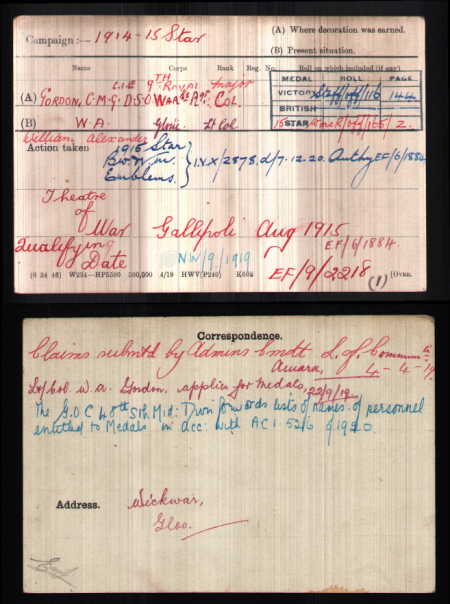 Campaign :— 1914-15 Star
(A) Where decoration was earned.
(B) Present situation.
Name Corps Rank Reg. No. Roll on which included (if any)
MEDAL ROLL PAGE
VICTORY Staff/off/116 144
BRITISH
15 STAR 2.
C.I.E 9TH Royal Major
(A) GORDON, C.M.G. D.S.O War. R. Col.
(B) W.A. Glouc. Lt Col
William Alexander
Action taken 1915 Star
B.W. & V. M.
Emblems.
I.V.X/2878. d/7.12.20. Authy EF/6/1884
Theatre
of
War Gallipoli Aug 1915
Qualifying EF/6/1884.
Date NW/9/1919
EF/9/2218 (1)
(6 34 46) W234—HP5590 500,000 4/19 HWV(P240) K608 [Over.
Correspondence.
Claims submitd by Admins Cmdt L. of Communi
Amara, 4-4-19
Lt/Col W.A. Gordon. applies for Medals, 22/9/19
The G.O.C 48th Sth Mid: Divn forwards lists of names of personnel
entitled to Medals in acc: with ACI. 526 of 1920.
Address. Wickwar,
Glos.